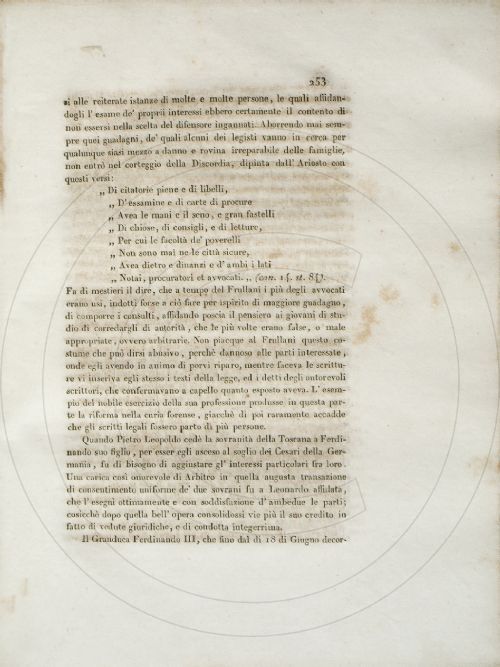 253
si alle reiterate istanze di molte e molte persone, le quali affidan-
dogli l' esame de' proprii interessi ebbero certamente il contento di
non essersi nella scelta del difensore ingannati. Aborrendo mai sem-
pre quei guadagni, de' quali alcuni dei legisti vanno in cerca per
qualunque siasi mezzo a danno e rovina irreparabile delle famiglie,
non entrò nel corteggio della Discordia, dipinta dall' Ariosto con
questi versi:
„ Di citatorie piene e di libelli,
„ D'essamine e di carte di procure
„ Avea le mani e il seno, e gran fastelli
„ Di chiose, di consigli, e di letture,
„ Per cui le facoltà de' poverelli
„ Non sono mai ne le città sicure,
„ Avea dietro e dinanzi e d' ambi i lati
„ Notai, procuratori et avvocati. „ (can. 14. st. 84).
Fa di mestieri il dire, che a tempo del Frullani i più degli avvocati
erano usi, indotti forse a ciò fare per ispirito di maggiore guadagno,
di comporre i consulti, affidando poscia il pensiero ai giovani di stu-
dio di corredargli di autorità, che le più volte erano false, o male
appropriate, ovvero arbitrarie. Non piacque al Frullani questo co-
stume che può dirsi abusivo, perchè dannoso alle parti interessate,
onde egli avendo in animo di porvi riparo, mentre faceva le scrittu-
re vi inseriva egli stesso i testi della legge, ed i detti degli autorevoli
scrittori, che confermavano a capello quanto esposto aveva. L' esem-
pio del nobile esercizio della sua professione produsse in questa par-
te la riforma nella curia forense, giacchè di poi raramente accadde
che gli scritti legali fossero parto di più persone.
Quando Pietro Leopoldo cedè la sovranità della Toscana a Ferdi-
nando suo figlio, per esser egli asceso al soglio dei Cesari della Ger-
mania, fu di bisogno di aggiustare gl' interessi particolari fra loro.
Una carica così onorevole di Arbitro in quella augusta transazione
di consentimento uniforme de' due sovrani fu a Leonardo affidata,
che l' esegui ottimamente e con soddisfazione d'ambedue le parti;
cosicchè dopo quella bell' opera consolidossi vie più il suo credito in
fatto di vedute gioridiche, e di condotta integerrima.
Il Granduca Ferdinando III, che fino dal di 18 di Giugno decor-